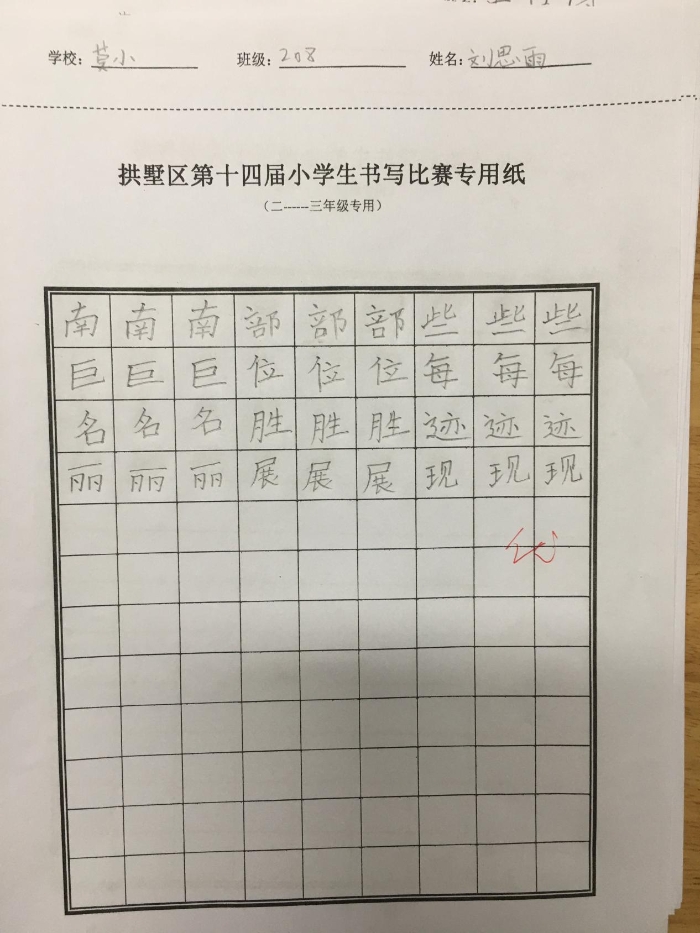 学校：莫小 班级：208 姓名：刘思雨
拱墅区第十四届小学生书写比赛专用纸
（二------三年级专用）
南南南部部部些些些
巨巨巨位位位每每每
名名名胜胜胜迹迹迹
丽丽丽展展展现现现
优